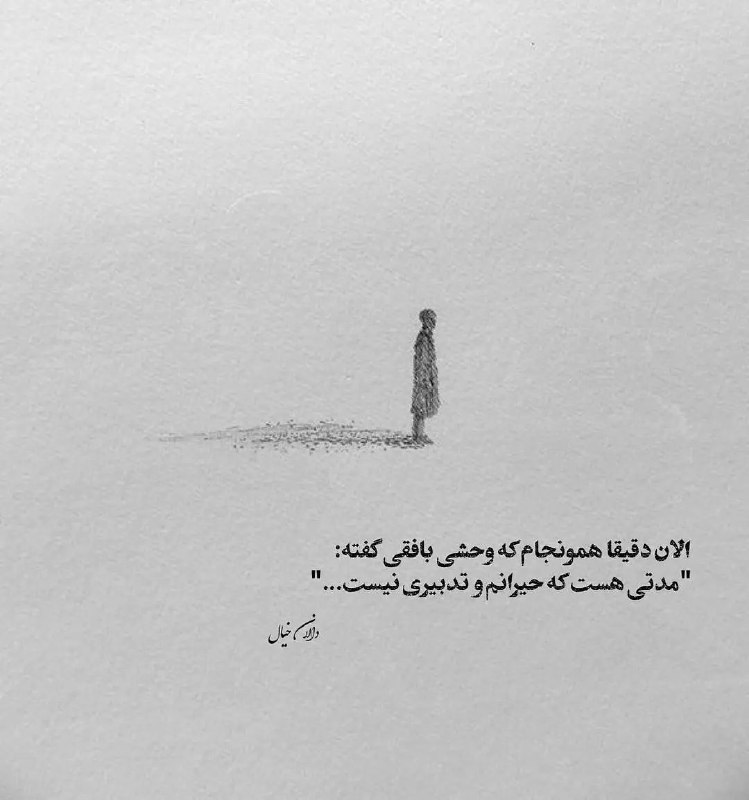 الان دقیقا همونجام که وحشی بافقی گفته:
"مدتی هست که حیرانم و تدبیری نیست..."
دالان خیال